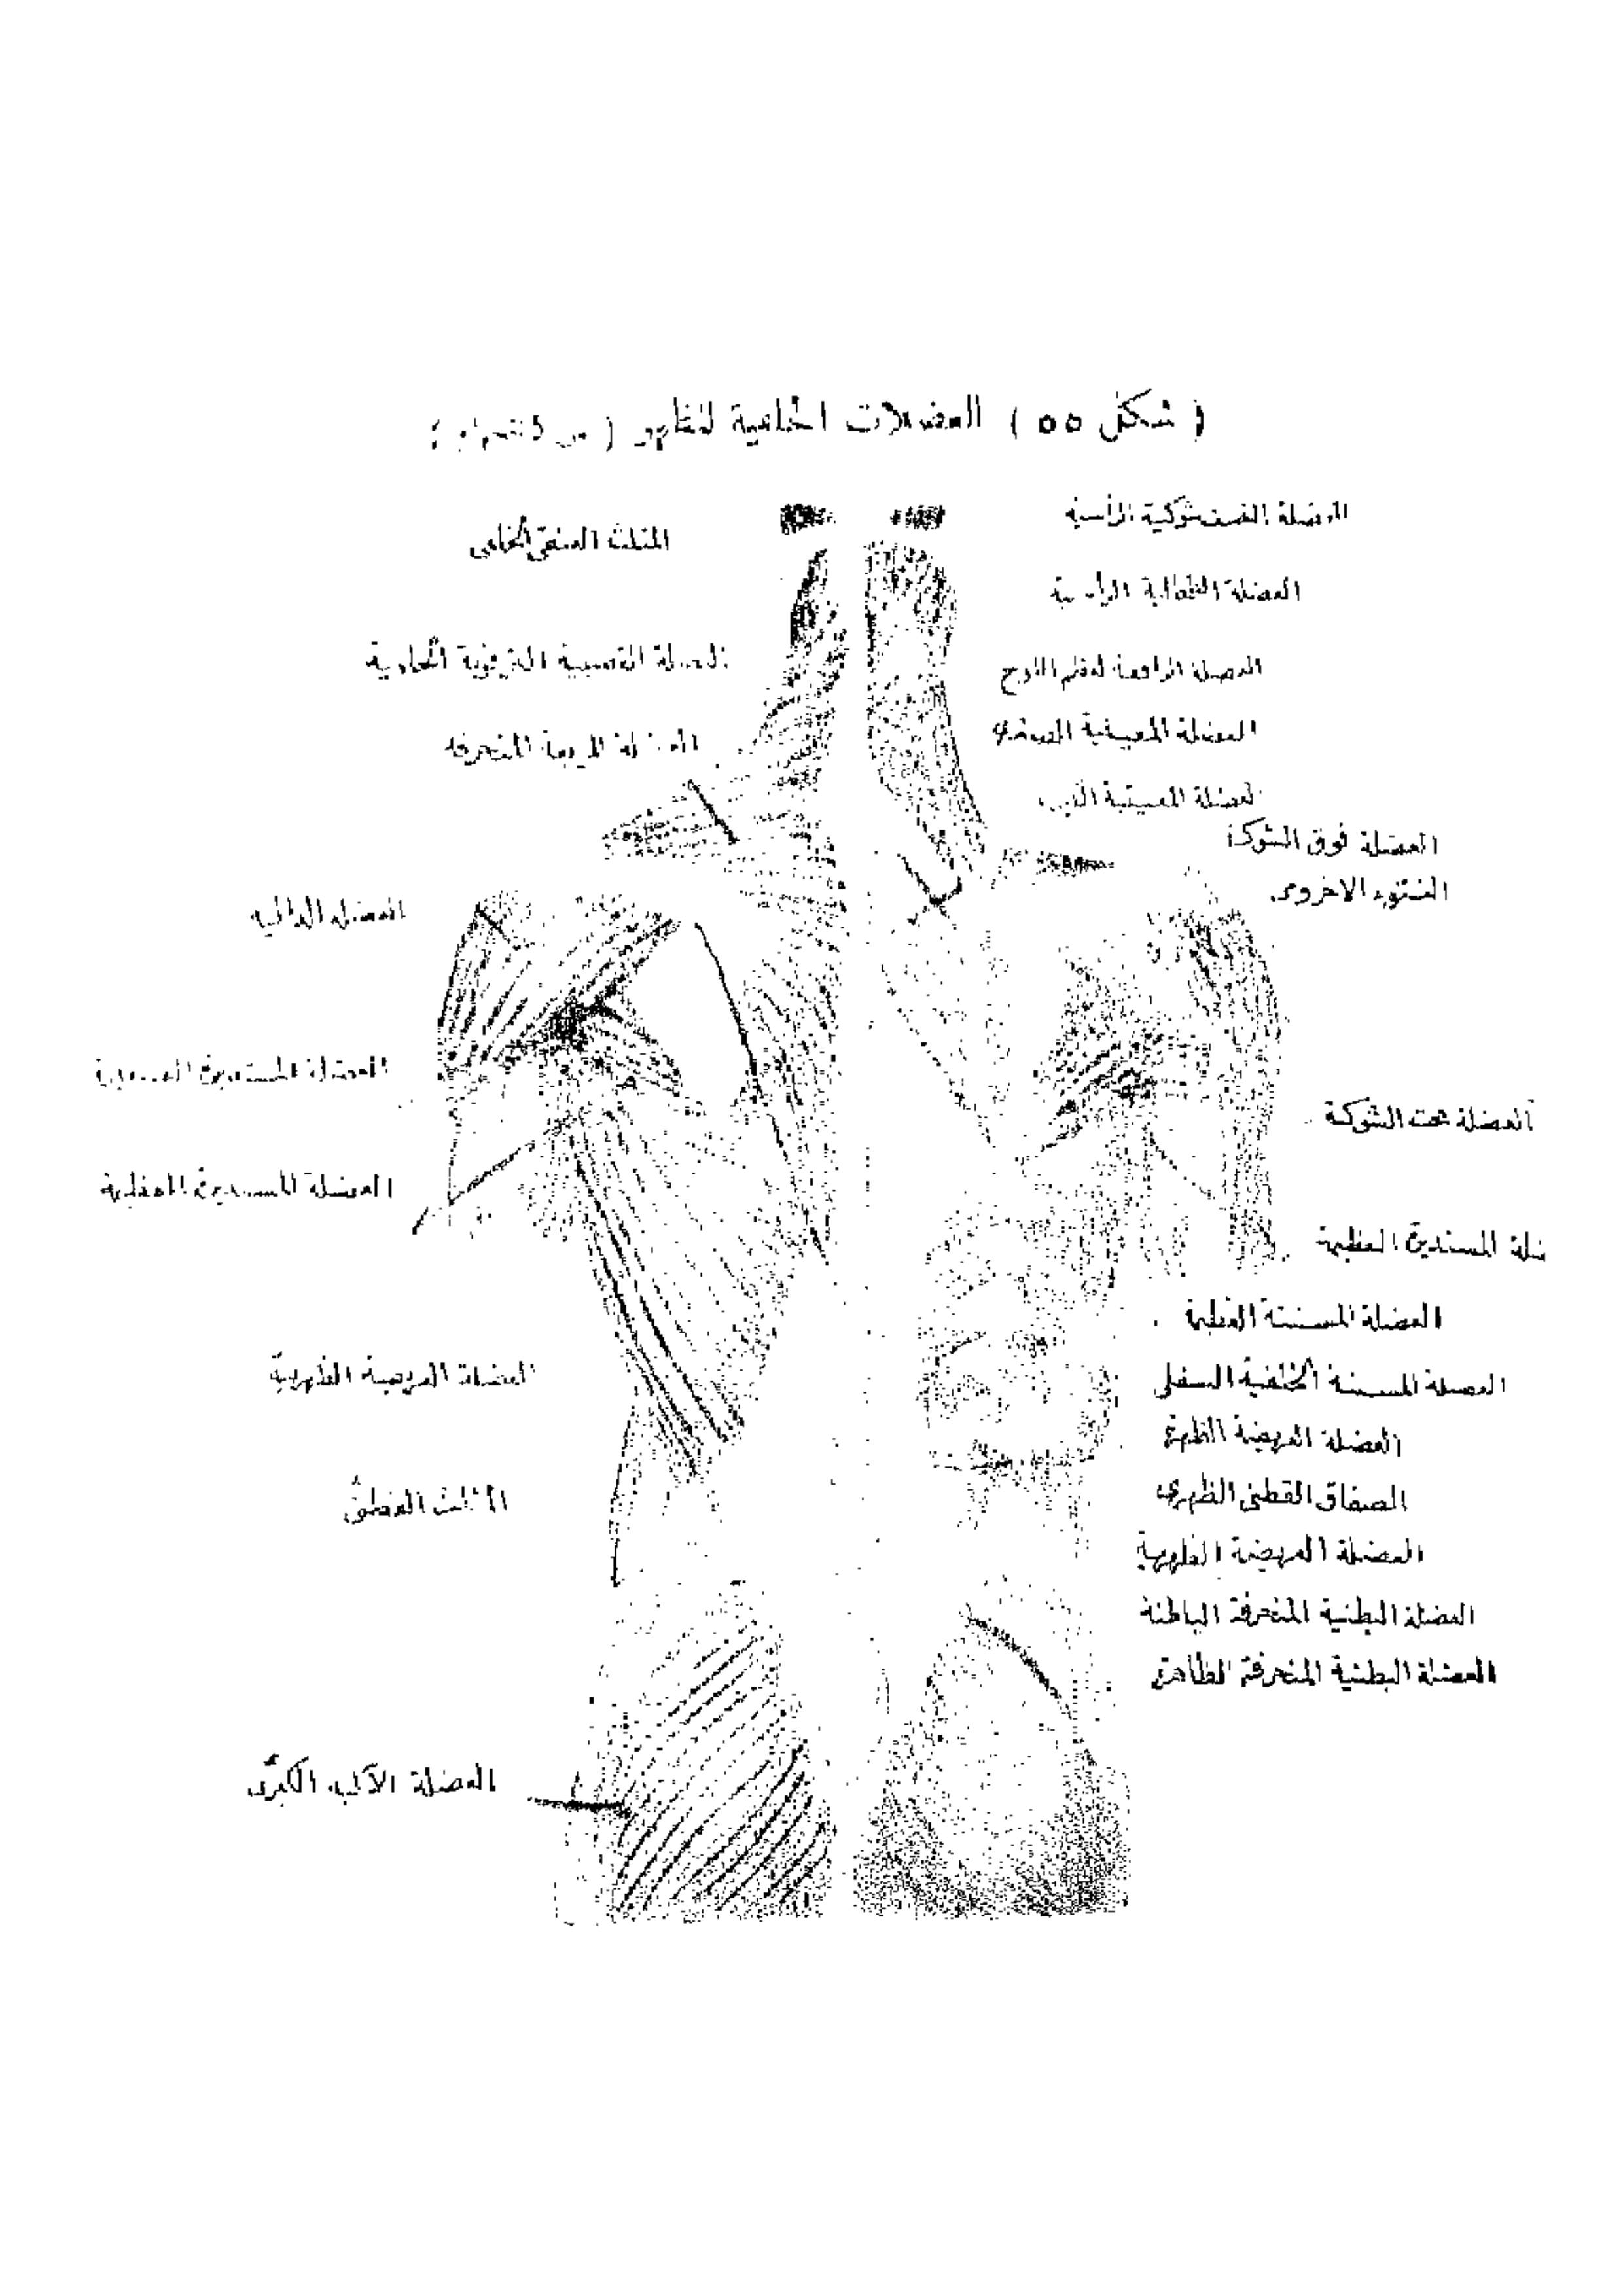 ( شكل ٥٥ ) العضلات الخلفية للظهر ( من
العضلة النصف شوكية الرأسية
المثلث العنقى الخلفى
العضلة الطحالية الرأسية
العضلة القصبية الترقوية الحلمية
العضلة الرافعة لعظم اللوح
العضلة المعينية الصغرى
العضلة المربعة المنحرفة
العضلة المعينية
العضلة فوق الشوكة
النتوء الاخرومى
العضلة الدالية
العضلة المستديرة الصغيرة
العضلة تحت الشوكة
العضلة المستديرة العظيمة
ضلة المستديرة العظيمة
العضلة المسننة العظيمة
العضلة العريضة الظهرية
العضلة المسننة الخلفية السفلى
العضلة العريضة الظهرية
المثلث القطنى
الصفاق القطنى الظهرى
العضلة العريضة الظهرية
العضلة البطنية المنحرفة الباطنة
العضلة البطنية المنحرفة الظاهرة
العضلة الآلية الكبرى